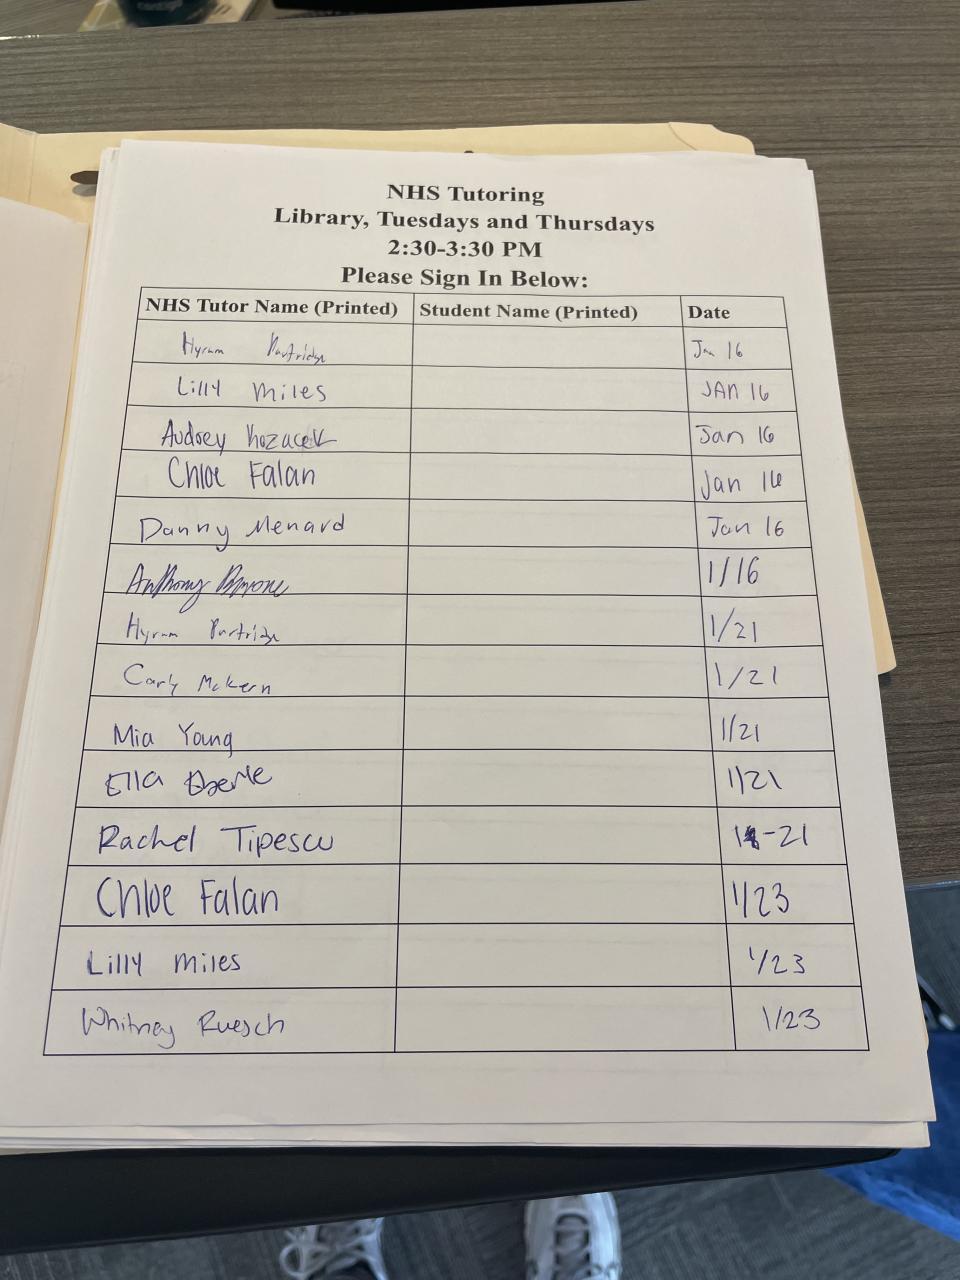 contigo
NHS Tutoring
Library, Tuesdays and Thursdays
2:30-3:30 PM
Please Sign In Below:
NHS Tutor Name (Printed) Student Name (Printed) Date
Hyrum Partridge Jan 16
Lilly Miles JAN 16
Audrey Kozacek Jan 16
Chloe Falan Jan 16
Danny Menard Jan 16
Anthony 1/16
Hyrum Partridge 1/21
Carly McKern 1/21
Mia Young 1/21
Ella Eberle 1/21
Rachel Tipescu 1-21
Chloe Falan 1/23
Lilly Miles 1/23
Whitney Ruesch 1/23